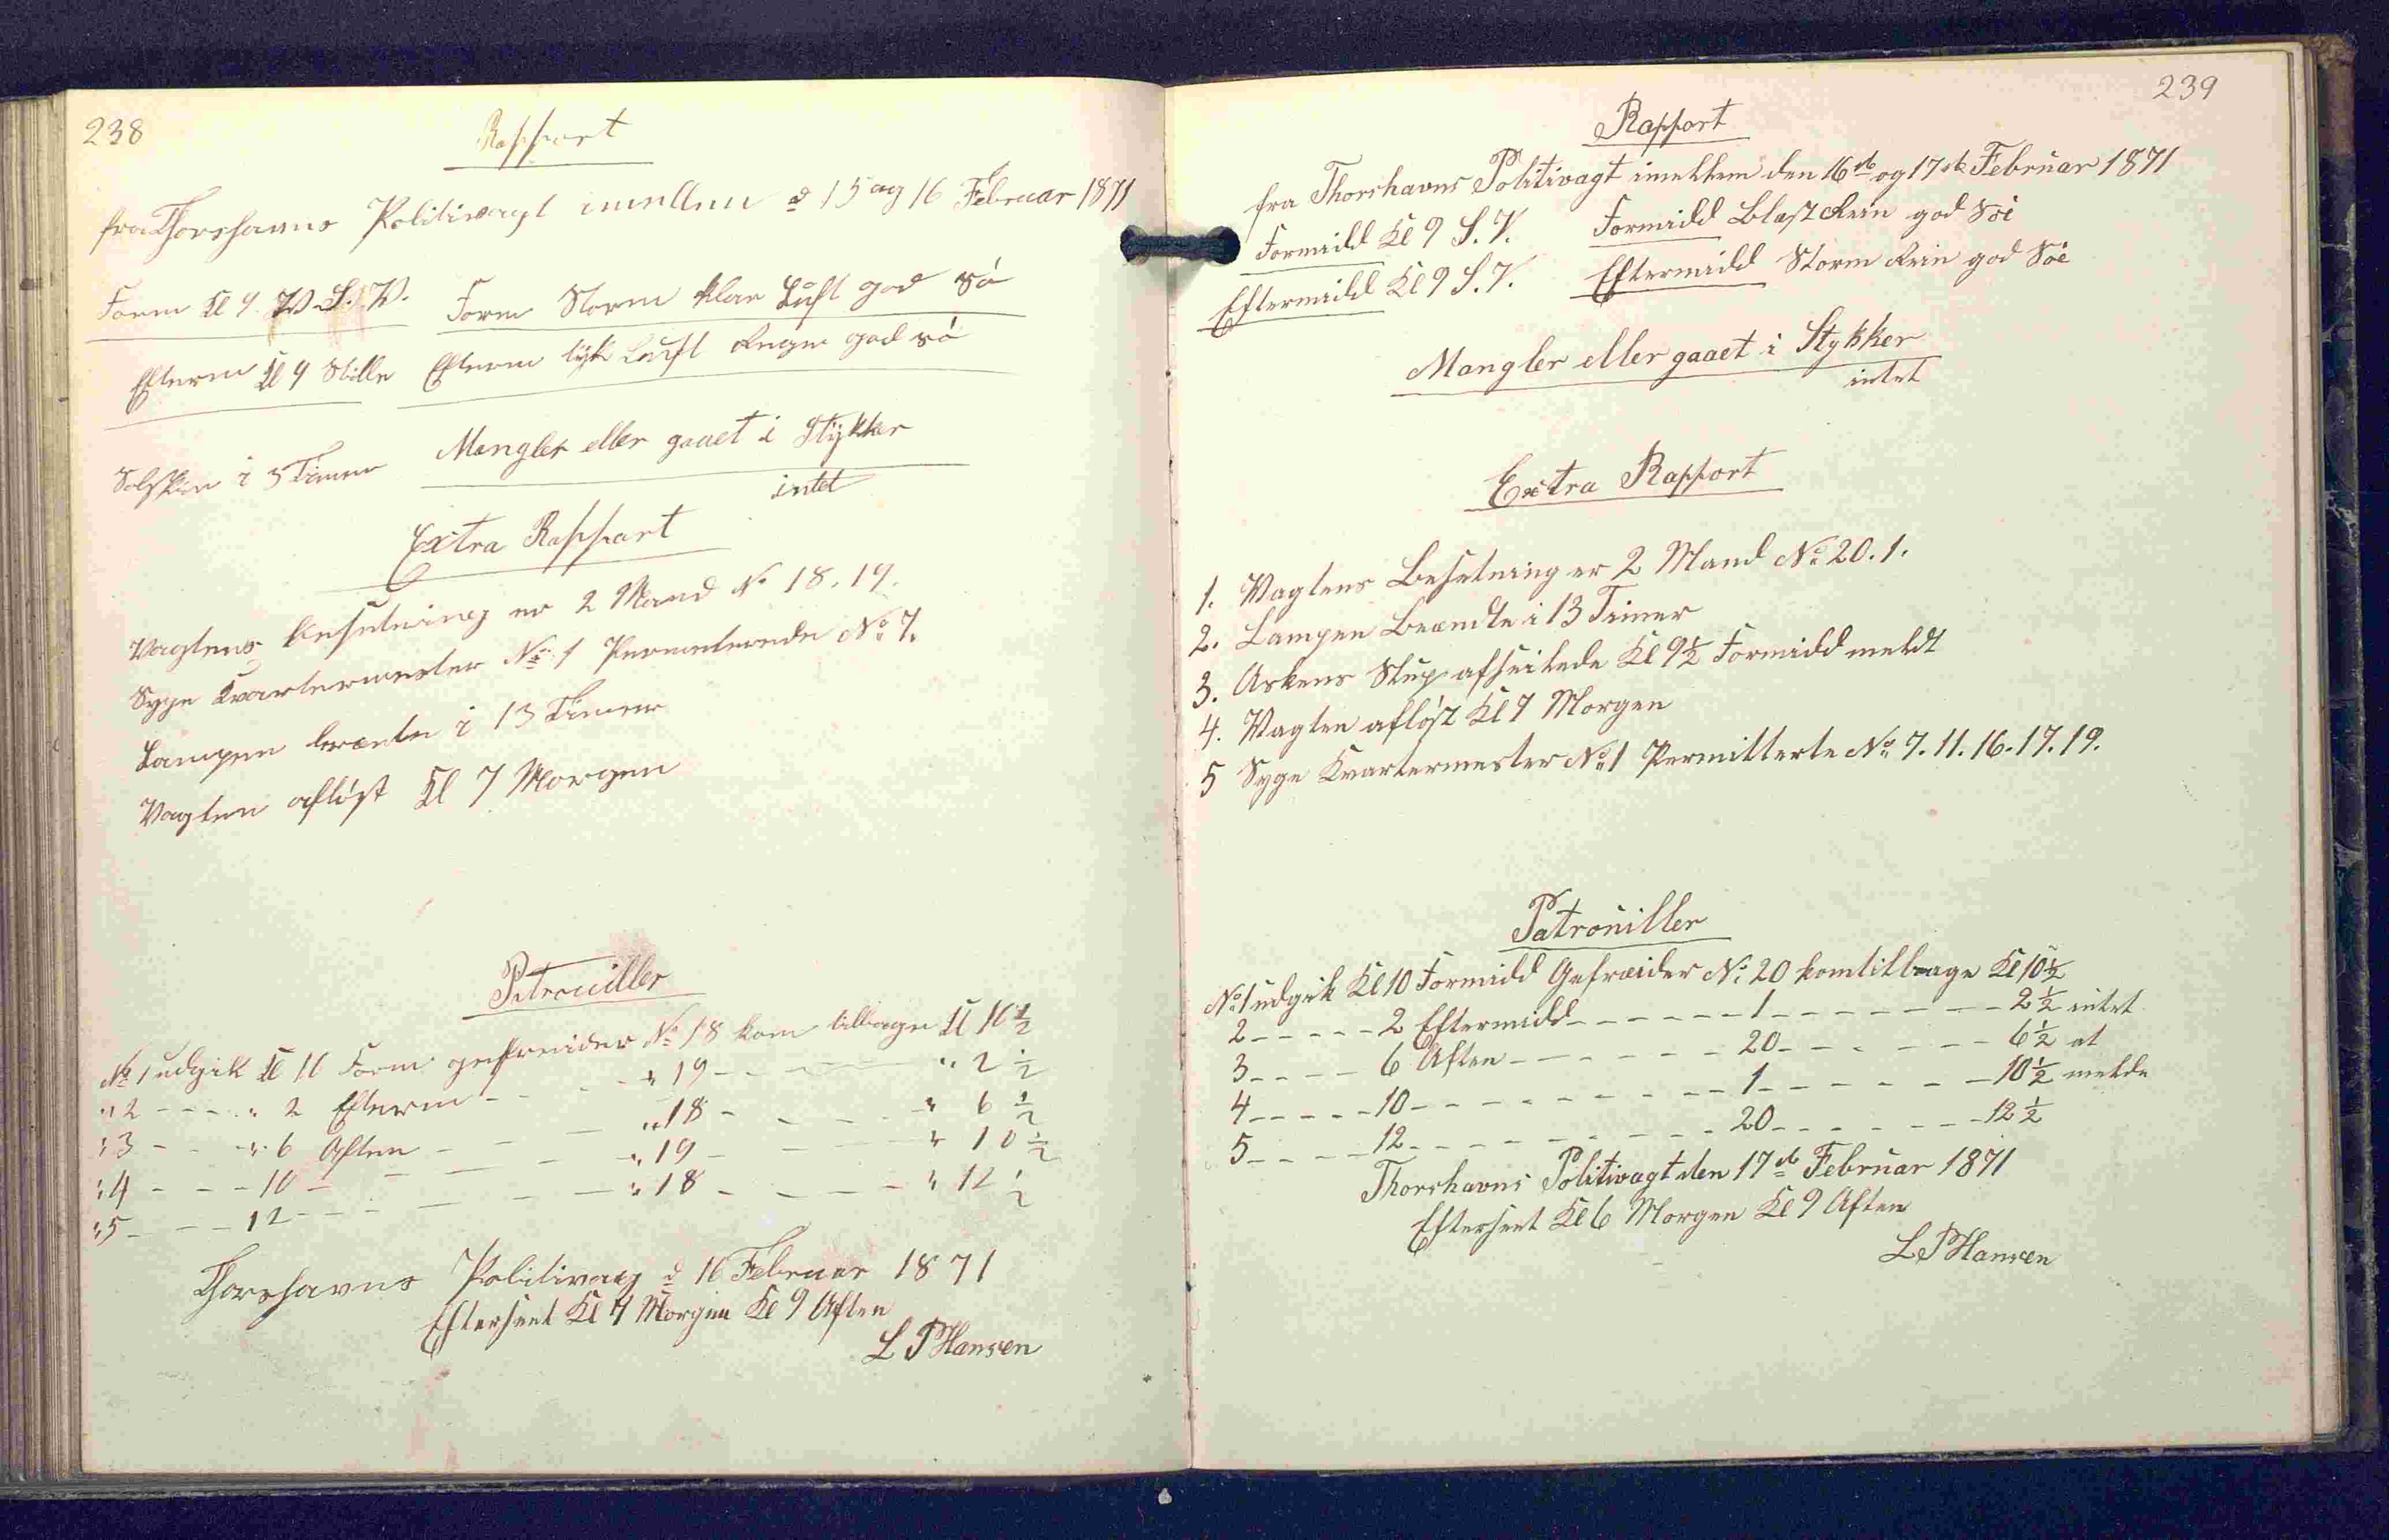 238
Rapport
fra Thorshavns Politivagt imellem d 15 og 16 Februar 1871
Form Kl 9 V. S. V. Form Storm klar Luft god Sö
Efterm Kl 9 Stille Efterm tyk Luft Regn god Sö
Solskin i 3 Timer Mangler eller gaaet i Stykker
intet
Extra Rapport
Vagtens besetning er 2 Mand No 18. 19.
Syge Kvartermester No 1 Permeterede No 7.
Lampen brænte i 13 Timer
Vagten afløst Kl 7 Morgen
Patrouiller
No 1 udgik Kl 10 Form gefreider No 18 kom tilbage Kl 10½
" 2 - - - " 2 Efterm - - - " 19 - - - " 2½
" 3 - - " 6 Aften - - - " 18 - - - " 6½
" 4 - - - 10 - - - " 19 - - - " 10½
" 5 - - - 12 - - - " 18 - - - " 12½
Thorshavns Politivag d 16 Februar 1871
Efterseet Kl 7 Morgen Kl 9 Aften
L P Hansen
239
Rapport
fra Thorshavns Politivagt imellem den 16de og 17de Februar 1871
Formidd Kl 9 S. V. Formidd Blæst Rein god Söe
Eftermidd Kl 9 S. V. Eftermidd Storm Rein god Söe
Mangler eller gaaet i Stykker
intet
Extra Rapport
1. Vagtens Besetning er 2 Mand No 20. 1.
2. Lampen Brændte i 13 Timer
3. Askens Slup afseilede Kl 9½ Formidd meldt
4. Vagten afløst Kl 7 Morgen
5 Syge Kvartermester No 1 Permitterte No 7. 11. 16. 17. 19.
Patrouiller
No 1 udgik Kl 10 Formidd Gefreider No 20 kom tilbage Kl 10½
2 - - - - - 2 Eftermidd - - - - - - 1 - - - - - - - 2½ intet
3 - - - - 6 Aften - - - - - - 20 - - - - - - 6½ at
4 - - - - - 10 - - - - - - - - - 1 - - - - - - 10½ melde
5 - - - - 12 - - - - - - - - - 20 - - - - - - 12½
Thorshavns Politivagt den 17de Februar 1871
Efterseet Kl 6 Morgen Kl 9 Aften
L P Hansen